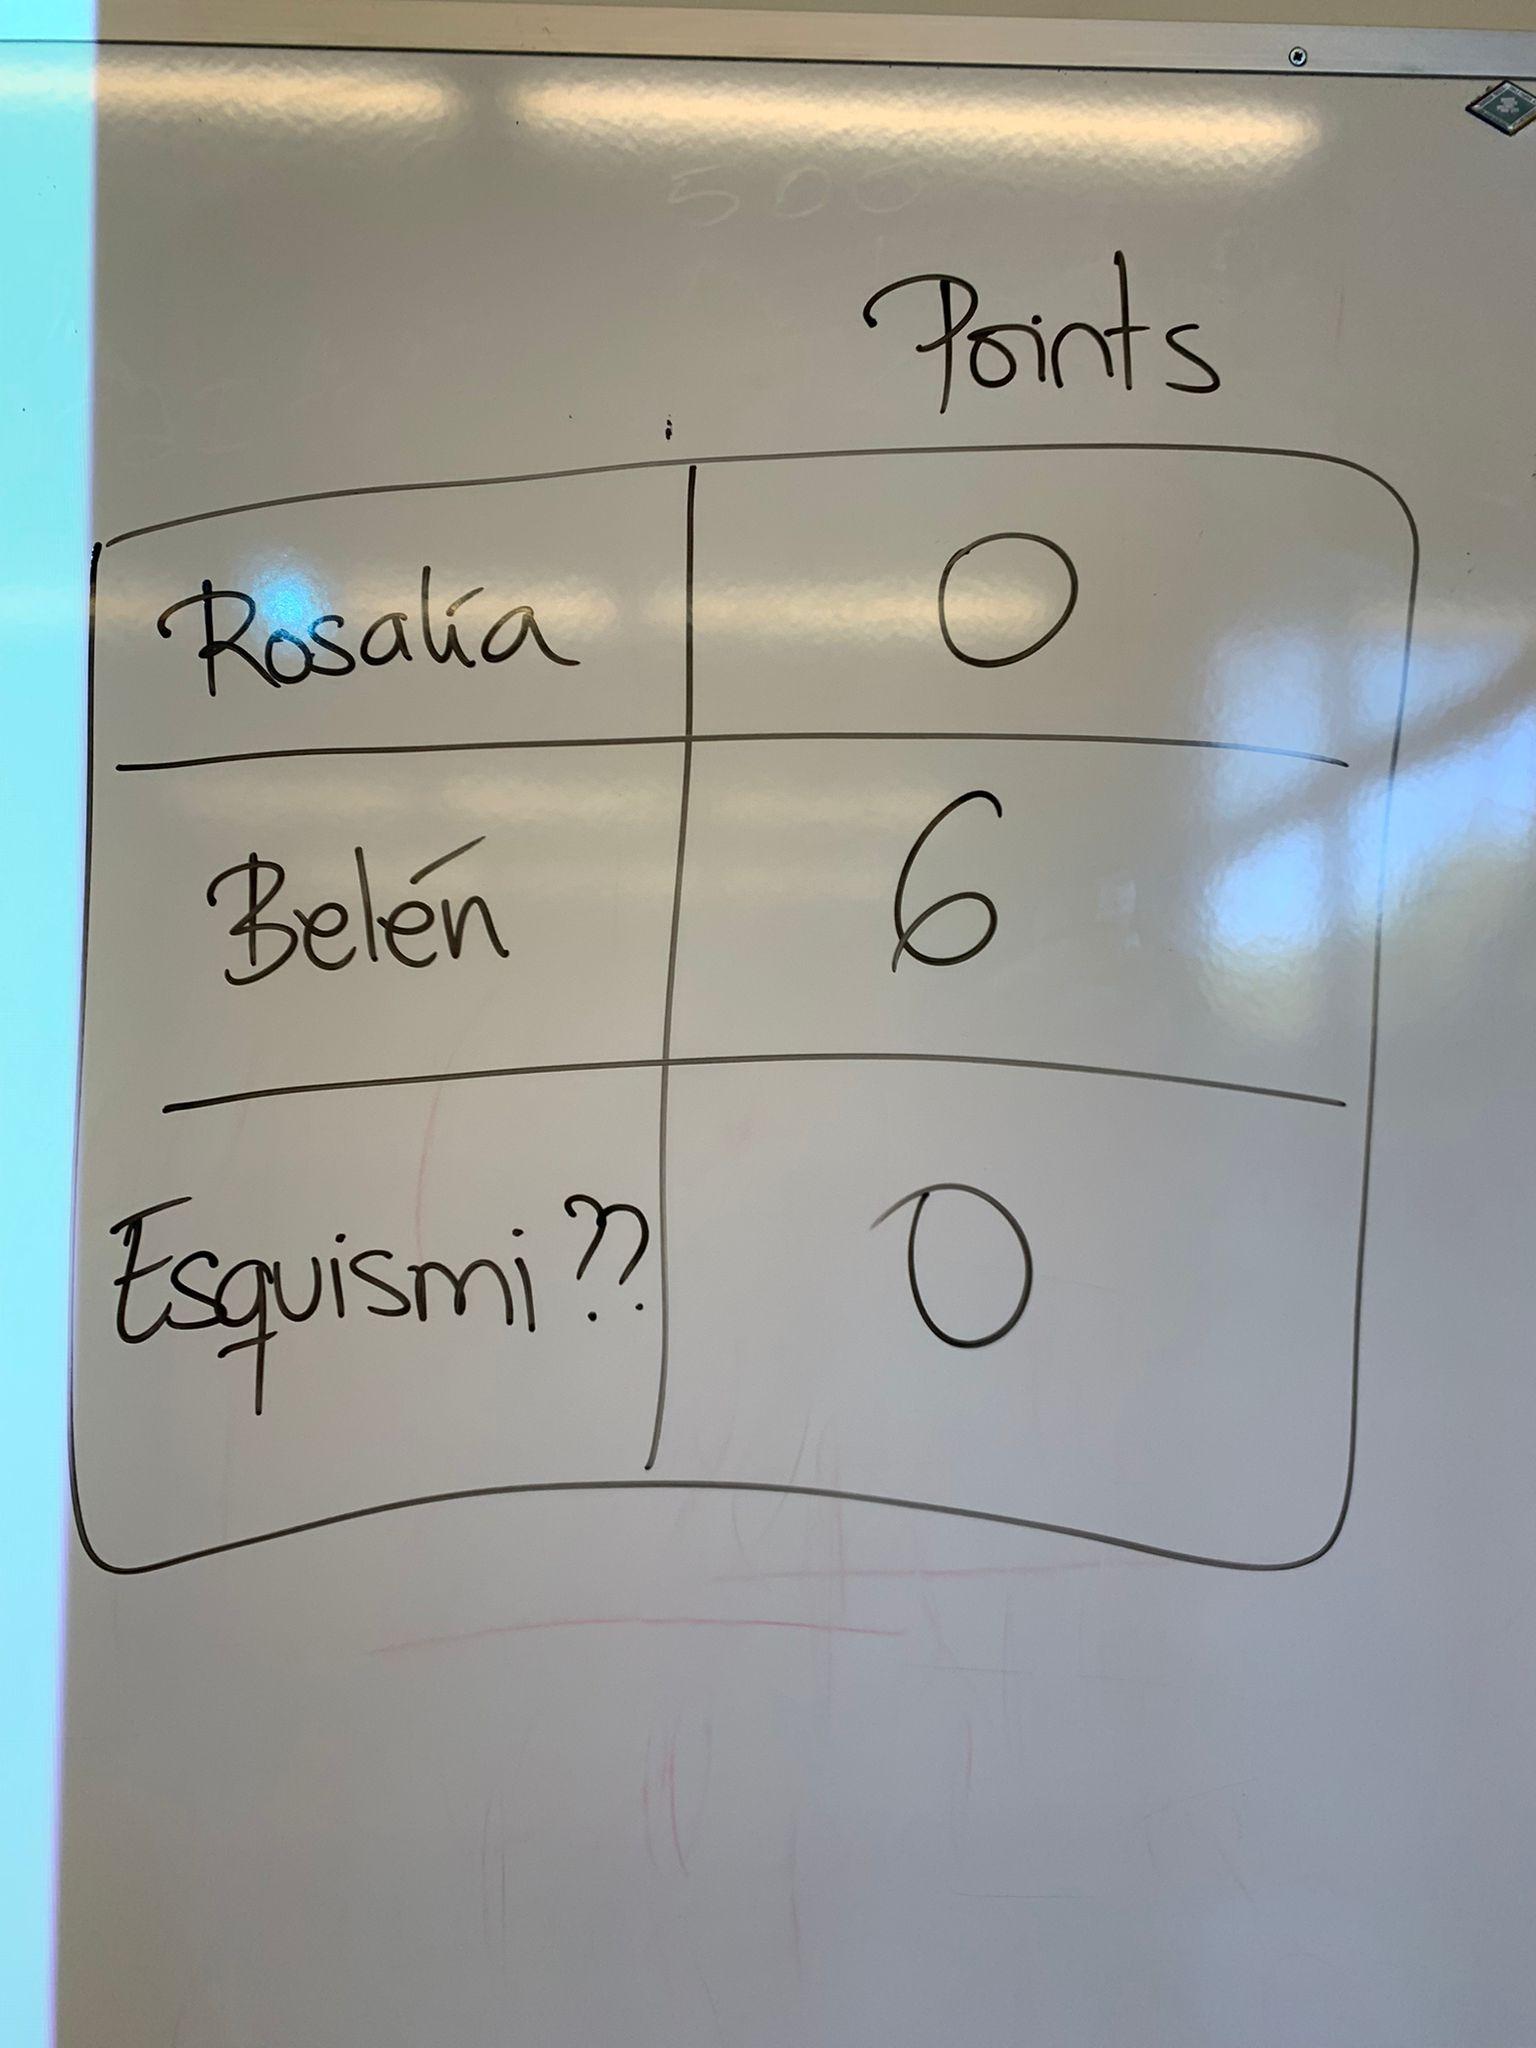 500
Points
Rosalía 0
Belén 6
Esquismi?? 0